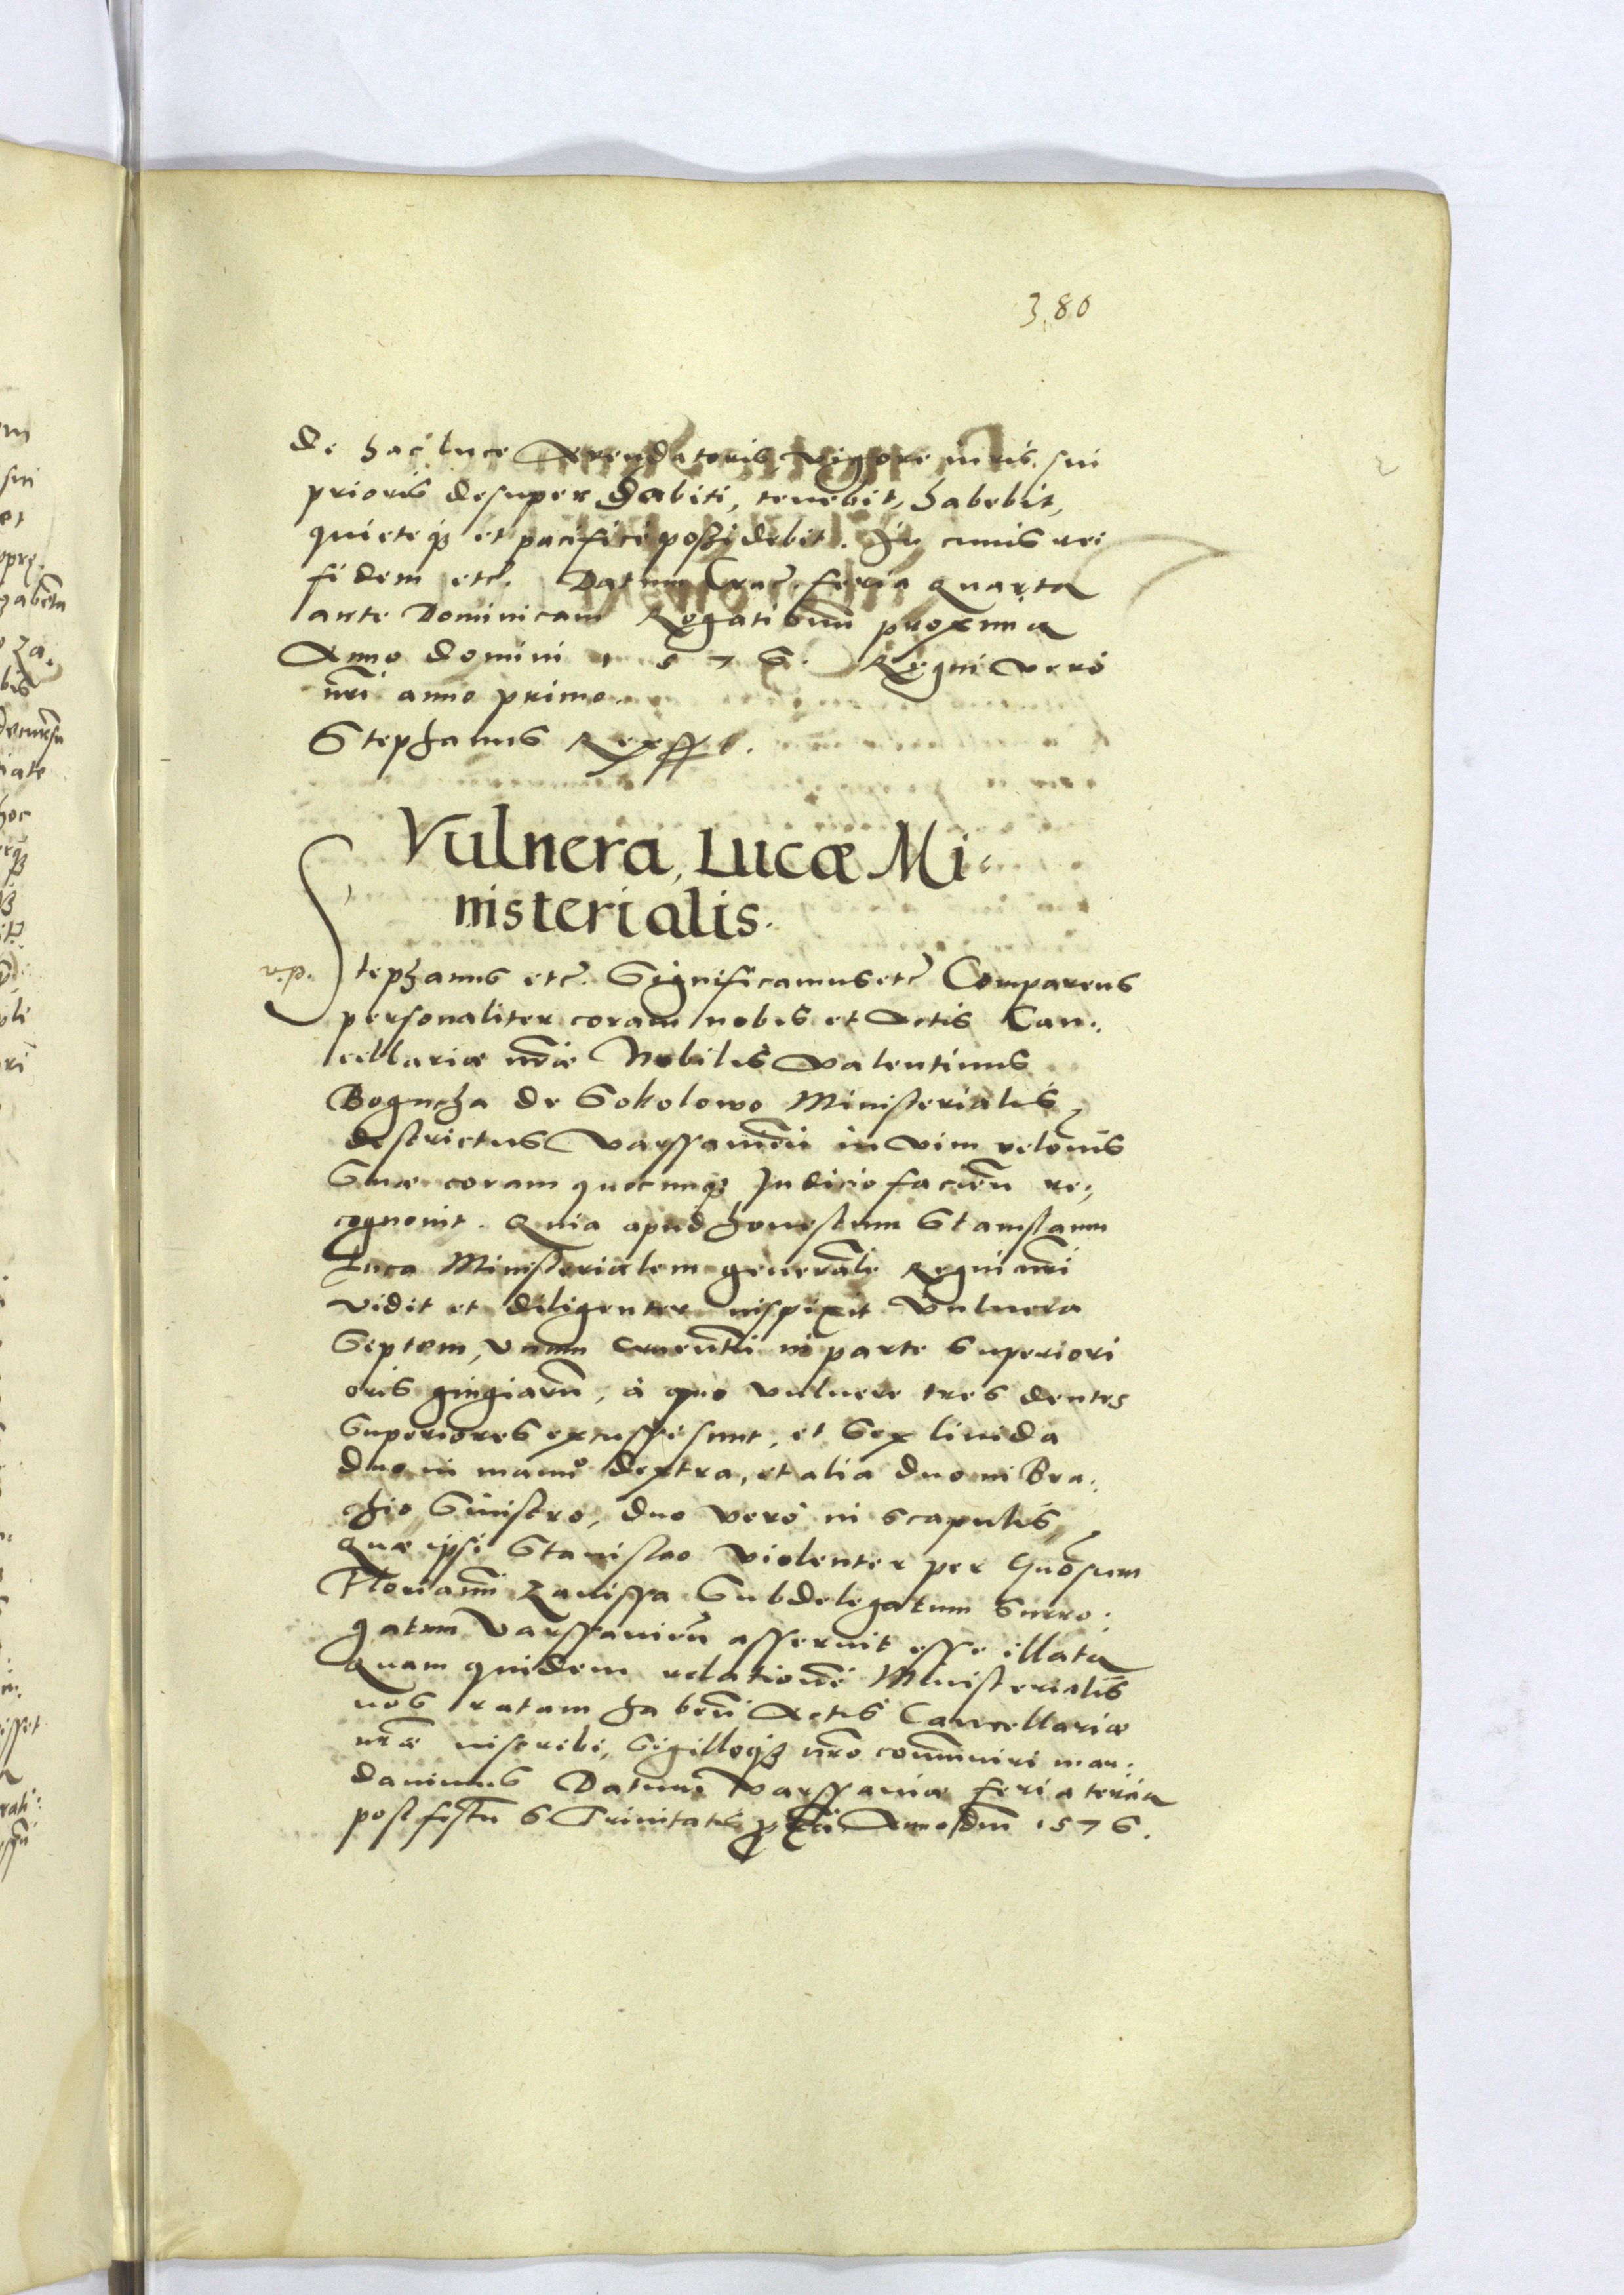 380
de hac luce Arendatoris, vigore iuris sui
prioris desuper habiti, tenebit, habebit,
quieteq3 et pacificè possidebit. In cuius rei
fidem etc. Datum Crac feria quarta
ante Dominicam Rogationum proxima
Anno domini 1576. Regni vero
nri anno primo.
Stephanus Rex sst.
Vulnera, Lucæ Mi-
nisterialis.
v.p. Stephanus etc. Significamus etc Comparens
personaliter coram nobis et Actis Can:
cellariæ nrae Nobilis Valentinus
Bogucha de Sokolowo Ministerialis
districtus Varssavien in vim relonis
Suæ coram quocunq3 Judicio facien re:
cognovit. Quia apud honestum Stanislaum
Luca Ministerialem generalē Regni nri
vidit et diligenter inspexit vulnera
Septem, Unum cruentū in parte superiori
oris gingiarū, à quo vulnere tres dentes
Superiores excussi sunt, et Sex livida
duo in manu dextra, et alia duo in Bra:
chio Sinistro, duo verò in scapulis,
Quæ ipsi Stanislao violenter per Gnosum
Florianū Zawissa Subdelegatum Surro:
gatum Varssavien asseruit esse illata
Quam quidem relationē Ministerialis
nos ratam haben Actis Cancellariæ
nræ inscribi, Sigilloq3 nro cōmuniri man:
davimus Datum Varssaviæ feria tercia
post festū S Trinitatis pxa Anno dni 1576.